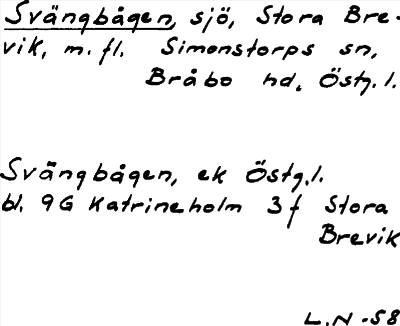 Svängbågen, sjö, Stora Bre-
vik, m. fl. Simonstorps sn,
Bråbo hd, Östg. l.
Svängbågen, ek Östg. l.
bl. 9G Katrineholm 3f Stora
Brevik
L.N -58